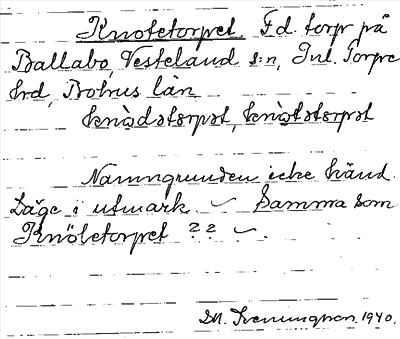 Knotetorpet. F.d. torp på
Ballabo, Vesteland s:n, Inl. Torpe
hrd, Bohus län
knòdstərpət, knòtstərpət
Namngrunden icke känd.
Läge i utmark. ~ Samma som
Knötetorpet ?? ~.
1940.